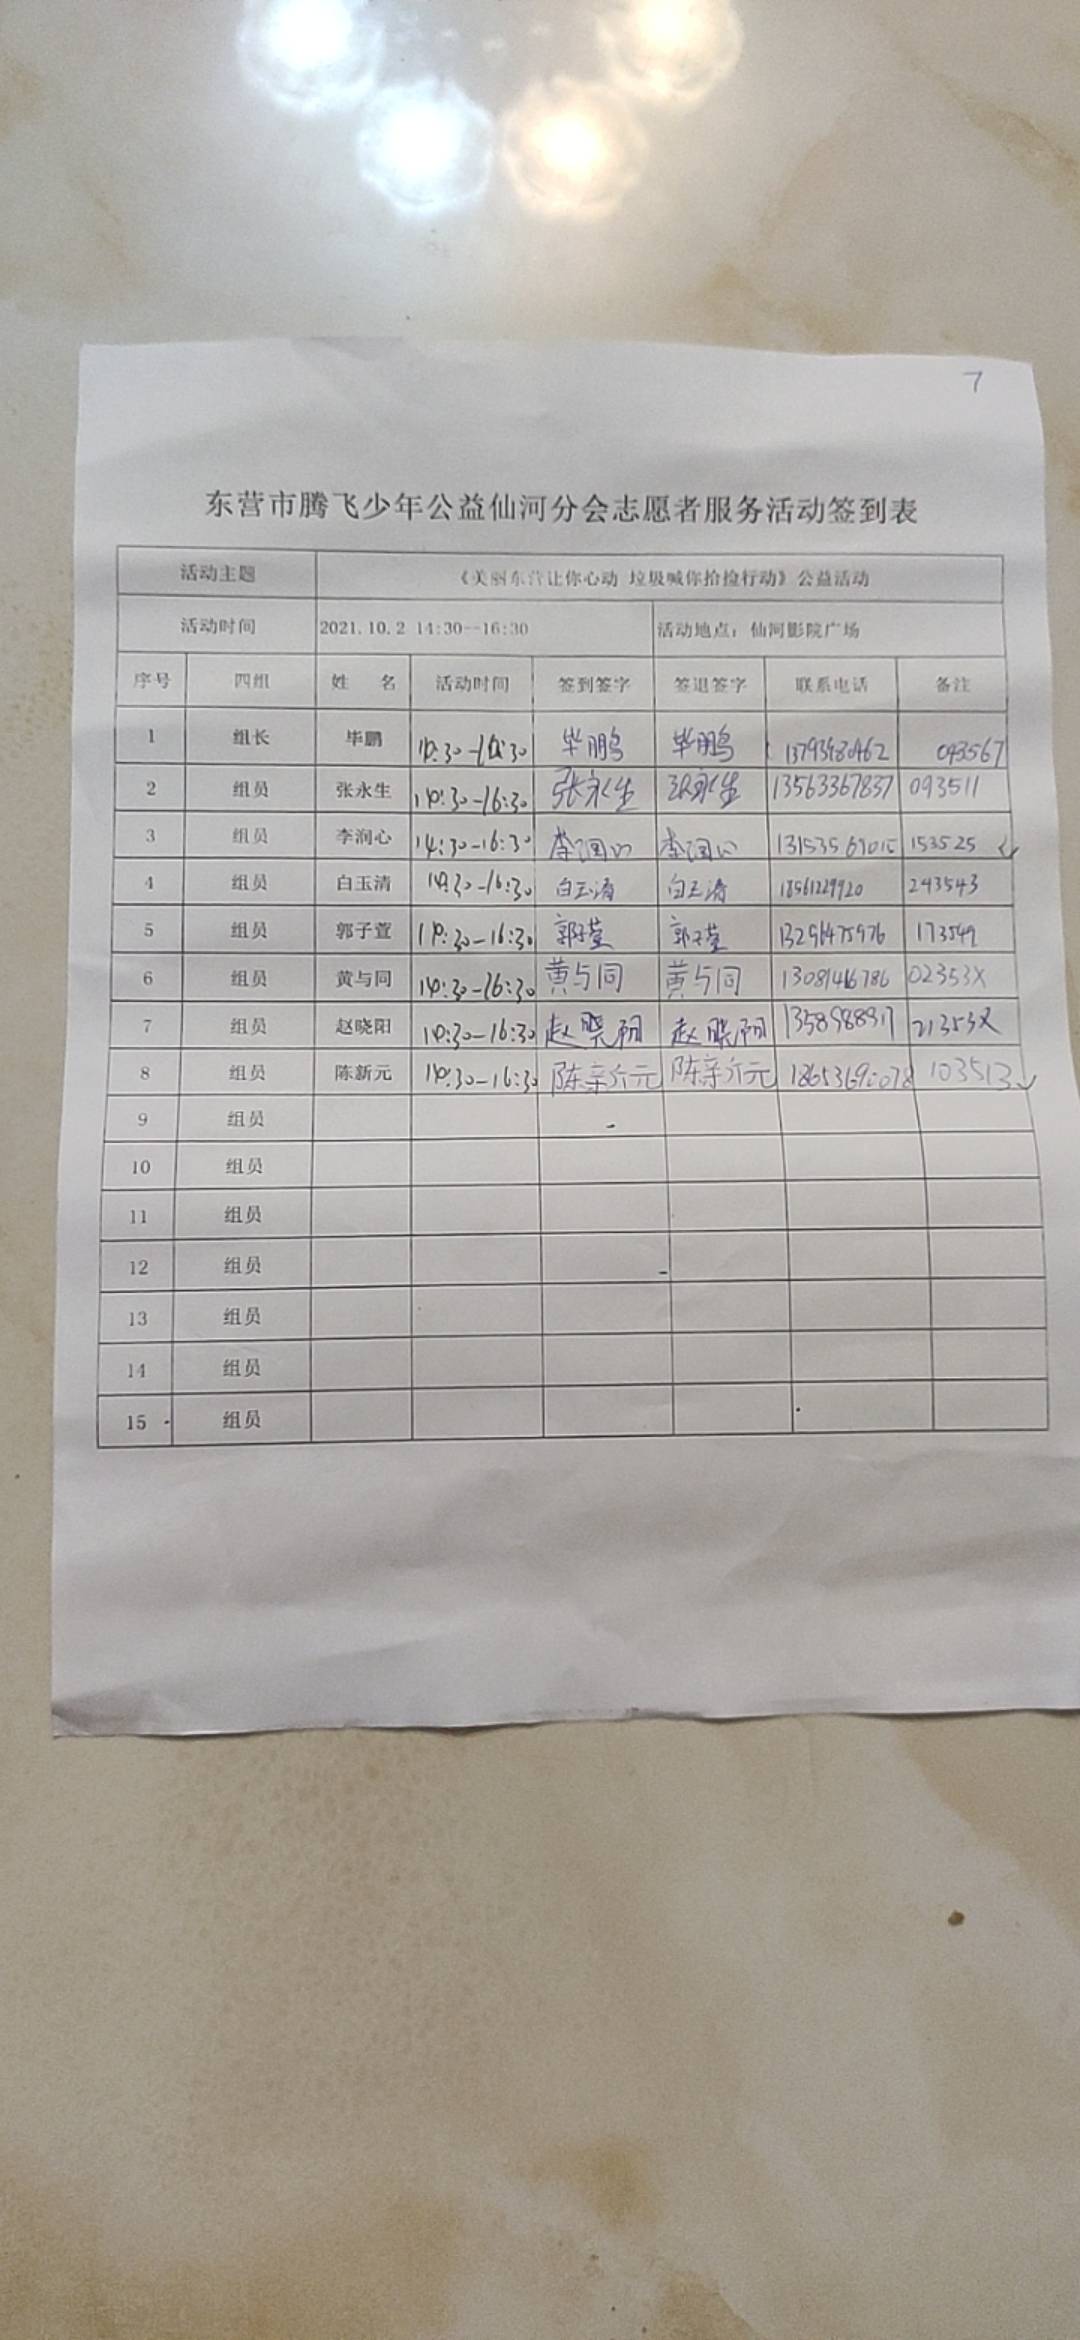 7
东营市腾飞少年公益仙河分会志愿者服务活动签到表
活动主题 《美丽东营让你心动 垃圾喊你拾捡行动》公益活动
活动时间 2021.10.2 14:30--16:30 活动地点：仙河影院广场
序号 四组 姓 名 活动时间 签到签字 签退签字 联系电话 备注
1 组长 毕鹏 14:30-16:30 毕鹏 毕鹏 13793980462 093567
2 组员 张永生 14:30-16:30 张永生 张永生 13563367837 093511
3 组员 李润心 14:30-16:30 李润心 李润心 153525
4 组员 白玉清 14:30-16:30 白玉清 白玉清 18561229920 243543
5 组员 郭子萱 14:30-16:30 郭子萱 郭子萱 13296475976 173549
6 组员 黄与同 14:30-16:30 黄与同 黄与同 13081416786 02353X
7 组员 赵晓阳 14:30-16:30 赵晓阳 赵晓阳 21353X
8 组员 陈新元 14:30-16:30 陈新元 陈新元 103513
9 组员
10 组员
11 组员
12 组员
13 组员
14 组员
15 组员